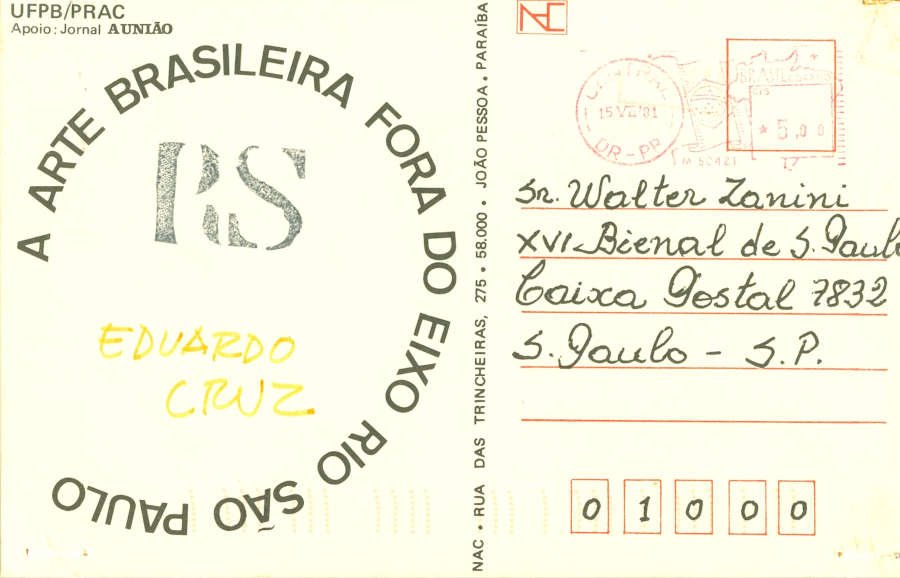 UFPB/PRAC
Apoio: Jornal A UNIÃO
A ARTE BRASILEIRA FORA DO EIXO RIO SÃO PAULO
RS
EDUARDO
CRUZ
NAC • RUA DAS TRINCHEIRAS, 275 • 58.000 • JOÃO PESSOA • PARAÍBA
15 VII '81
DR-PR
BRASIL
* 5,00
Sr. Walter Zanini
XVI Bienal de S. Paulo
Caixa Postal 7832
S. Paulo - S.P.
0 1 0 0 0